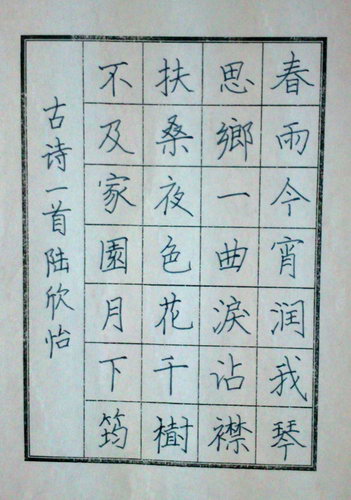 春雨今宵润我琴
思鄉一曲淚沾襟
扶桑夜色花千樹
不及家園月下筠
古诗一首陆欣怡